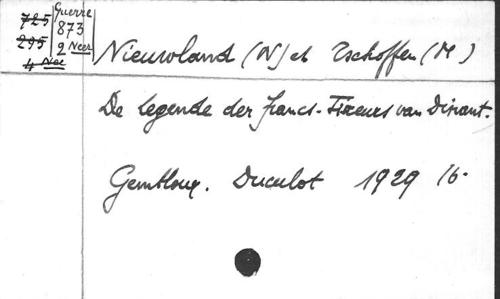 725 Guerre
295 873
4 Nee 2 Neer
Nieuwland (N) et Tschoffen (M)
De legende der francs-Tireurs van Dinant.
Gembloux. Duculot 1929 16-